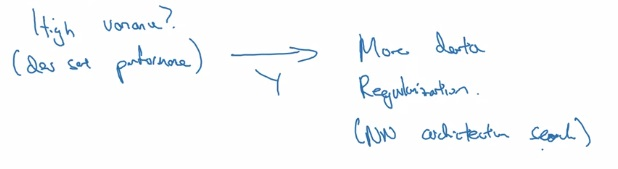 High variance?
(dev set performance)
Y
More data
Regularization.
(NN architecture search)